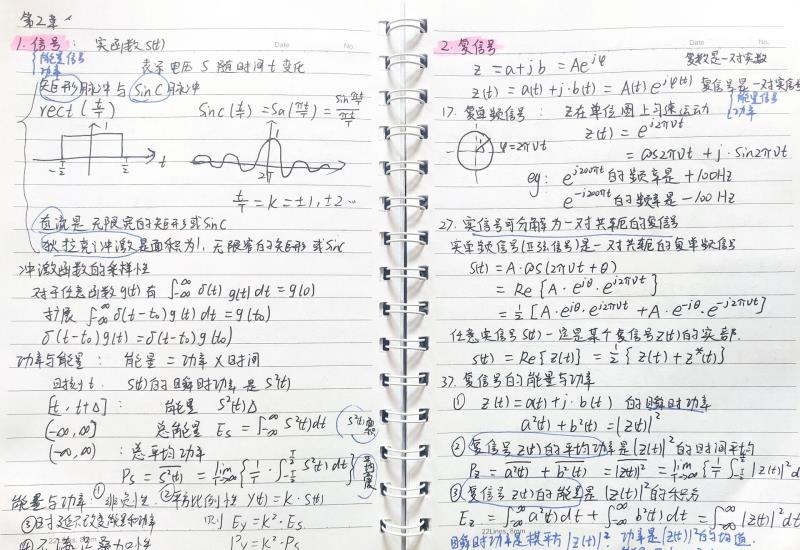 第2章
Date No.
1. 信号: 实函数 s(t)
{能量信号
功率
表示电压 S 随时间 t 变化
矩形脉冲与 Sinc 脉冲
rect(t/T) Sinc(t/T) = Sa(πt/T) = sin πt/T / πt/T
1 1
-T/2 T/2 t
t/T = k = ±1, ±2 …
直流是无限宽的矩形或 Sinc
狄拉克冲激是面积为1, 无限窄的矩形或 Sinc
冲激函数的采样性
对于任意函数 g(t) 有 ∫-∞^∞ δ(t) g(t) dt = g(0)
扩展 ∫-∞^∞ δ(t-t₀) g(t) dt = g(t₀)
δ(t-t₀) g(t) = δ(t-t₀) g(t₀)
功率与能量: 能量 = 功率 × 时间
时刻 t. s(t) 的瞬时功率是 s²(t)
[t, t+Δ]: 能量 s²(t)Δ
(-∞, ∞) 总能量 Es = ∫-∞^∞ s²(t) dt
(-∞, ∞): 总平均功率
Ps = s²(t) = lim T→∞ {1/T · ∫-T/2^T/2 s²(t) dt}
能量与功率: ① 非负性. ② 平方比例性 y(t) = k · s(t)
③ 时延不改变能量和功率 则 Ey = k² · Es
Py = k² · Ps
22Lines, 8mm
Date No.
2. 复信号
z = a + jb = Ae^jφ 复数是一对实数
z(t) = a(t) + j·b(t) = A(t) e^jφ(t) 复信号是一对实信号
{能量信号
功率
1°. 复单频信号: z在单位圆上匀速运动
φ = 2πνt z(t) = e^j2πνt
= cos2πνt + j · sin2πνt
eg: e^j200πt 的频率是 +100Hz
e^-j200πt 的频率是 -100Hz
2°. 实信号可分解为一对共轭的复信号
实单频信号(正弦信号)是一对共轭的复单频信号
s(t) = A · cos(2πνt + θ)
= Re{A · e^jθ · e^j2πνt}
= 1/2 [A · e^jθ · e^j2πνt + A · e^-jθ · e^-j2πνt]
任意实信号 s(t) 一定是某个复信号 z(t) 的实部.
s(t) = Re{z(t)} = 1/2 {z(t) + z*(t)}
3°. 复信号的能量与功率
① z(t) = a(t) + j · b(t) 的瞬时功率
a²(t) + b²(t) = |z(t)|²
② 复信号 z(t) 的平均功率是 |z(t)|² 的时间平均
Pz = a²(t) + b²(t) = |z(t)|² = lim T→∞ {1/T · ∫-T/2^T/2 |z(t)|² d
③ 复信号 z(t) 的能量是 |z(t)|² 的积分
Ez = ∫-∞^∞ a²(t) dt + ∫-∞^∞ b²(t) dt = ∫-∞^∞ |z(t)|² d
22Lines, 8mm
瞬时功率是模平方 |z(t)|². 功率是 |z(t)|² 的